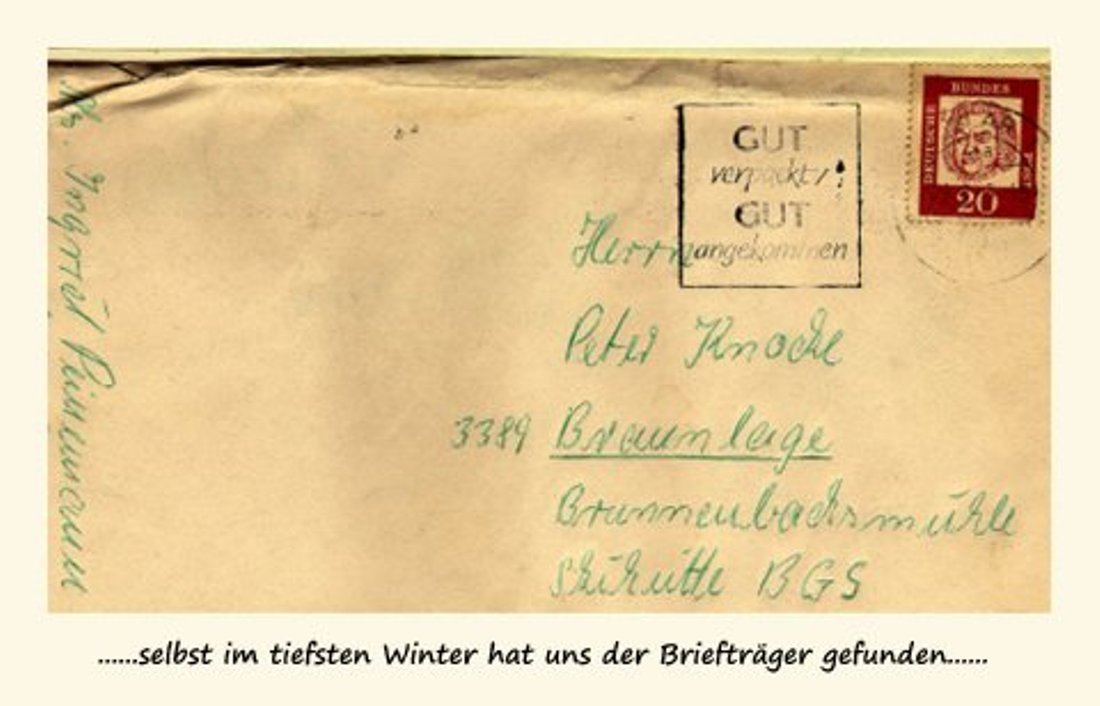 GUT
verpackt!
GUT
angekommen
DEUTSCHE
BUNDES
POST
20
Herrn
Peter Knocke
3389 Braunlage
Brunnenbachsmühle
Skihütte BGS
Ingrid
......selbst im tiefsten Winter hat uns der Briefträger gefunden......